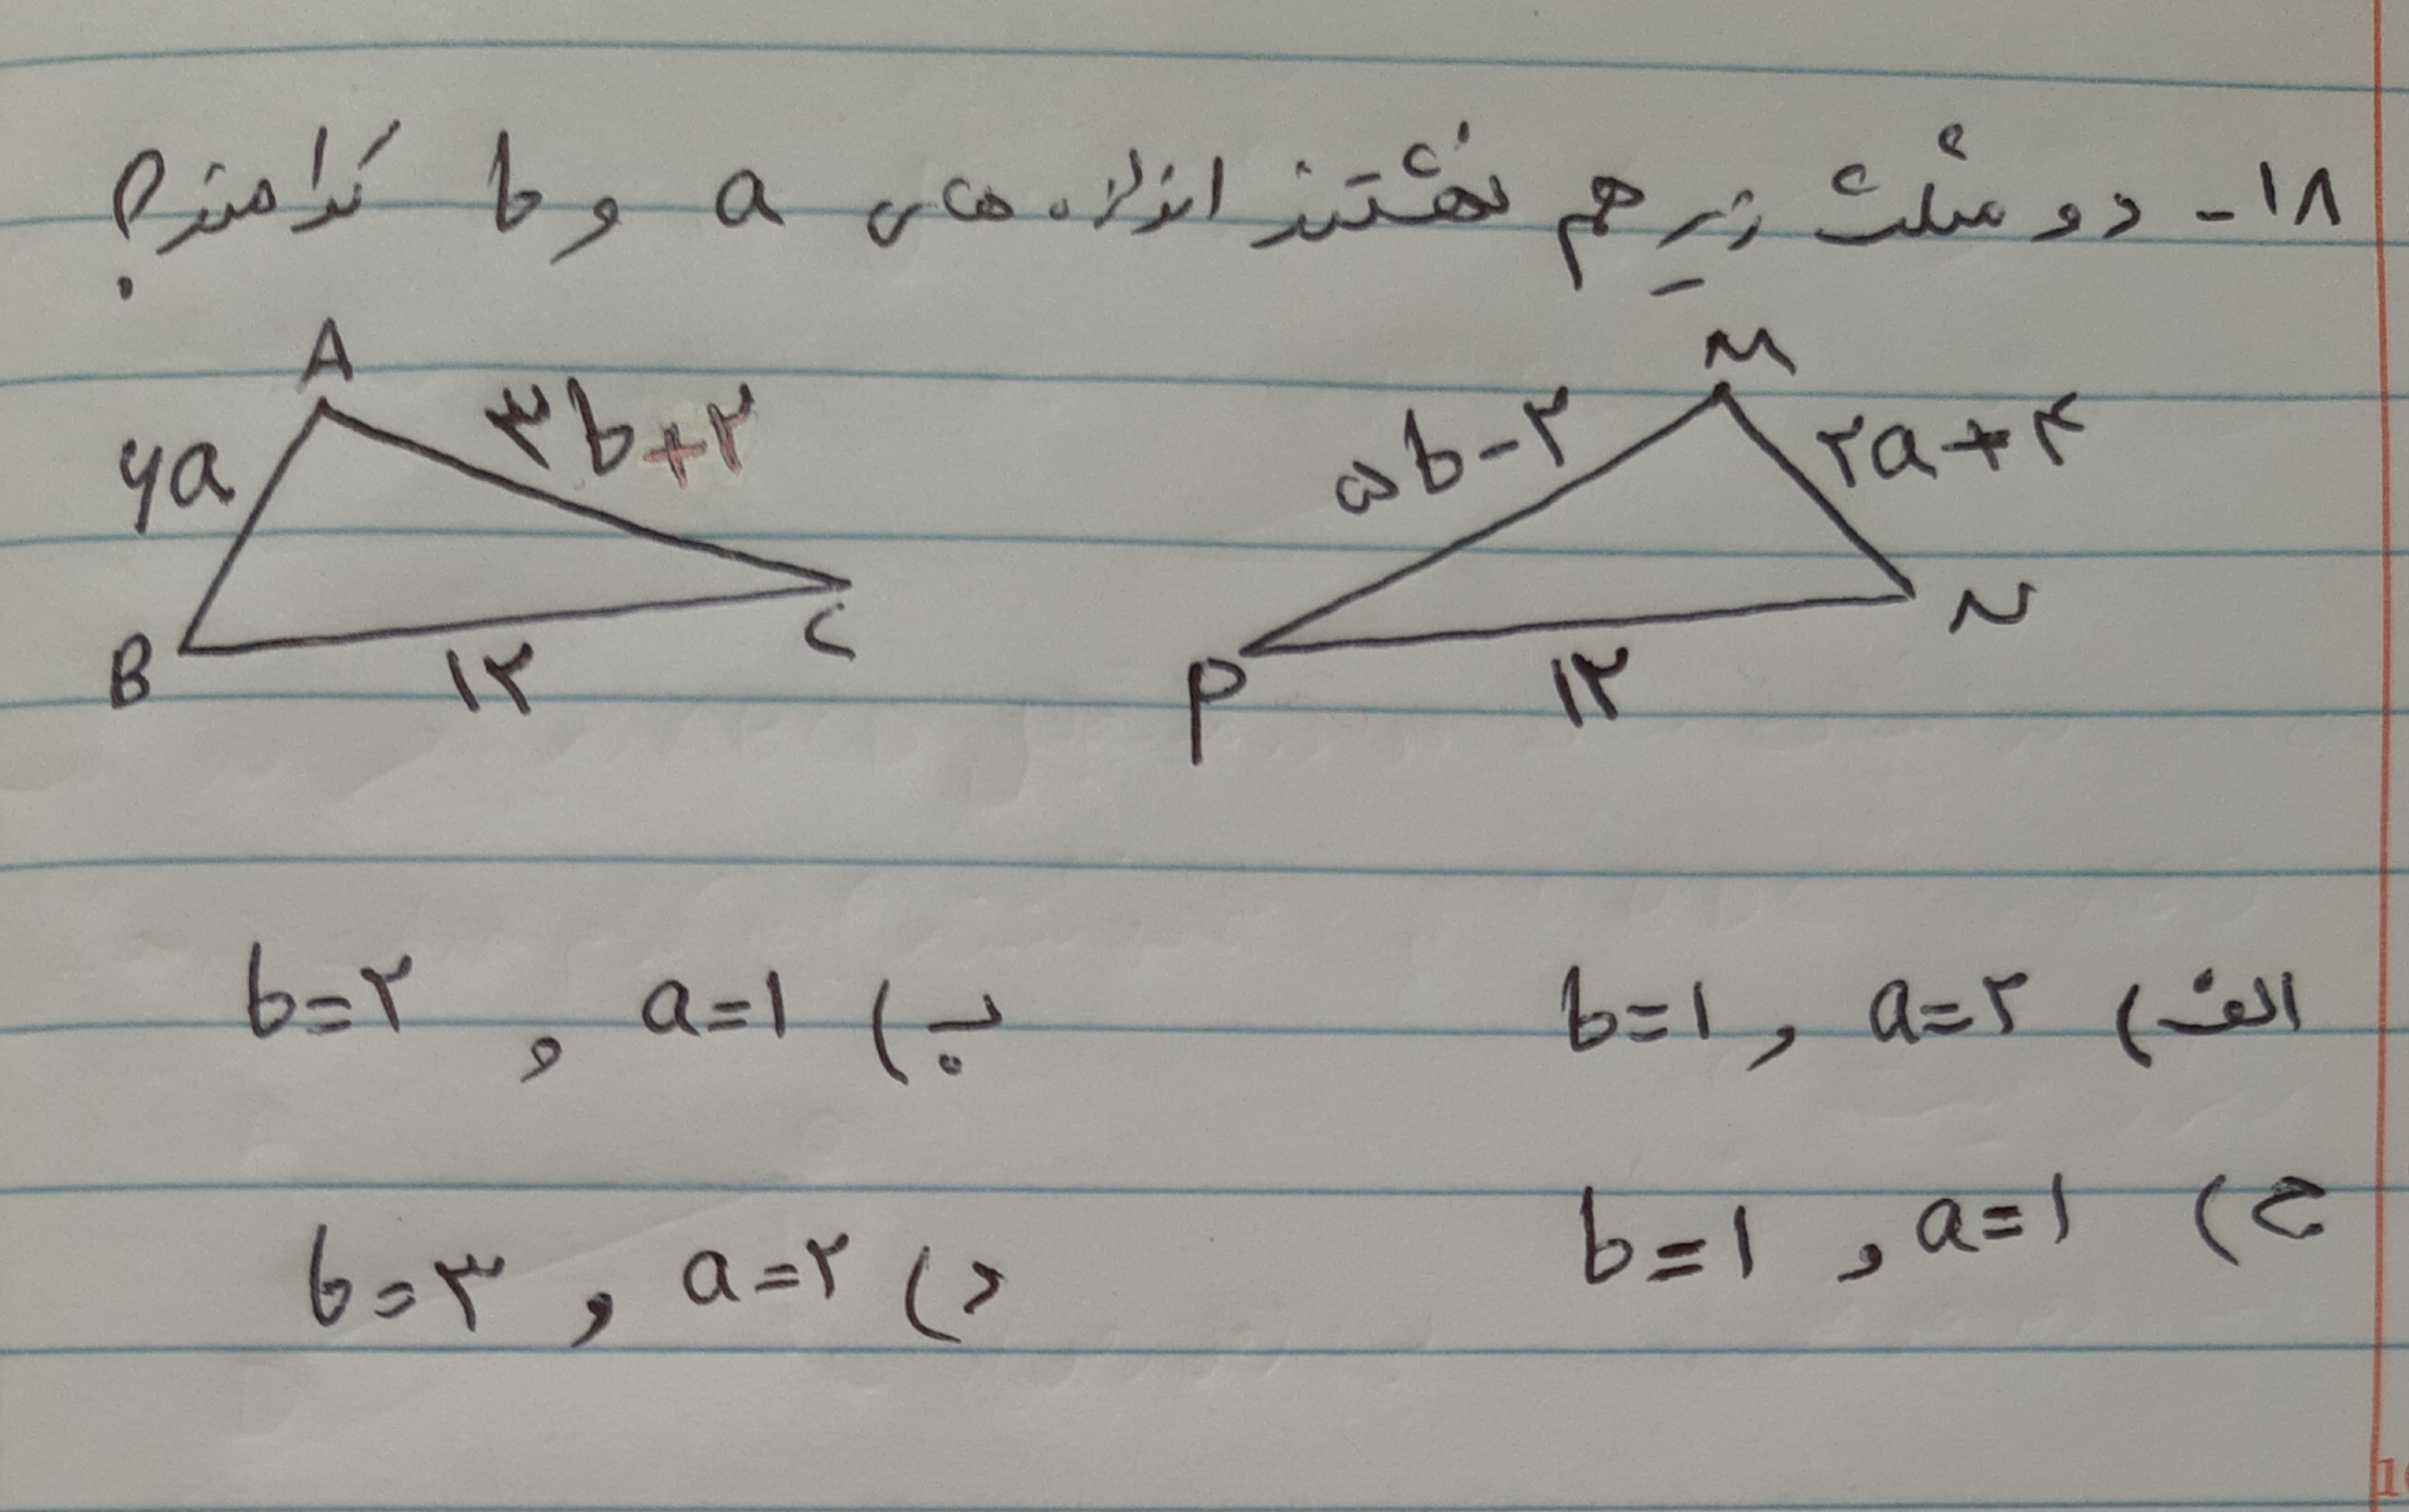 ۱۸- دو مثلث زیر هم نهشتند اندازه های a و b کدامند؟
A
۶a
۳b+۲
B
۱۲
C
M
۵b-۲
۲a+۴
P
۱۲
N
الف) a=۲ و b=۱
ب) a=۱ و b=۲
ج) a=۱ و b=۱
د) a=۲ و b=۳